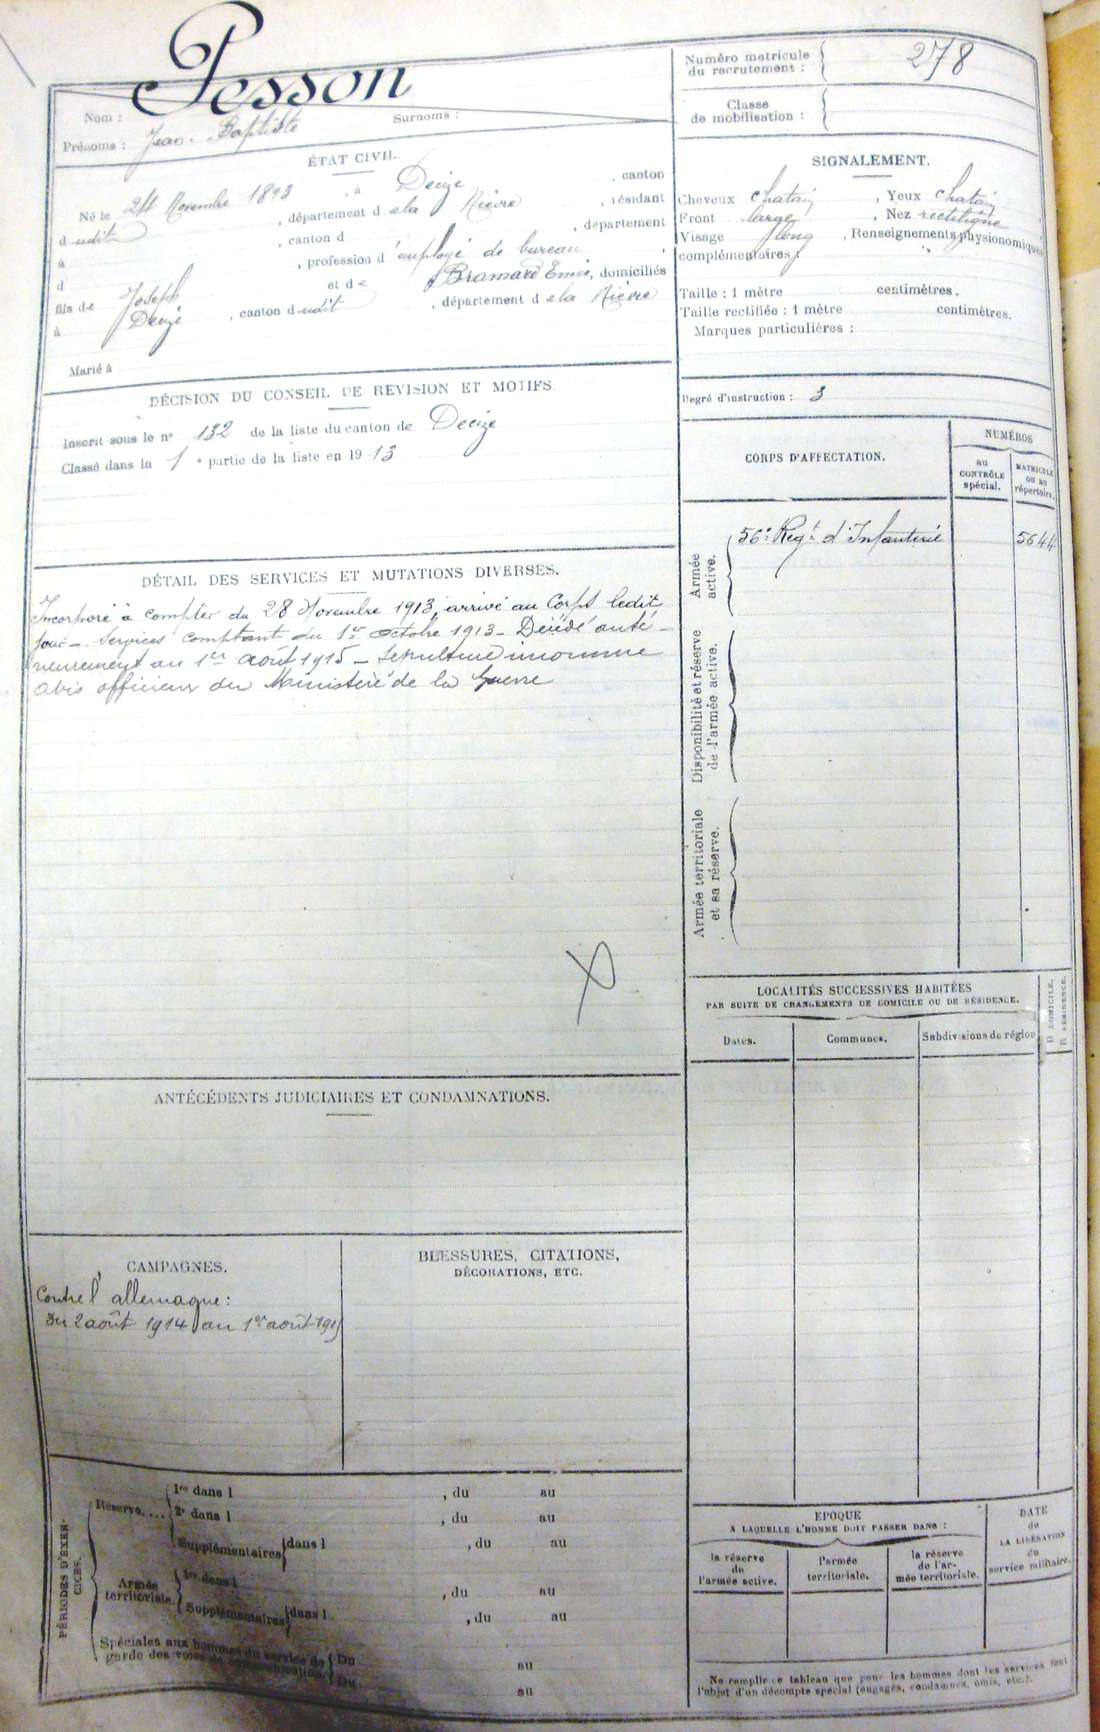 Pesson
Nom :
Surnoms :
Prénoms : Jean-Baptiste
ÉTAT CIVIL.
Né le 24 Novembre 1893, à Decize, canton
dudit, département de la Nièvre, résidant
à, canton d, département
d, profession d'employé de bureau,
fils de Joseph et de Bramard, domiciliés
à Decize, canton dudit, département de la Nièvre
Marié à
DÉCISION DU CONSEIL DE REVISION ET MOTIFS.
Inscrit sous le n° 132 de la liste du canton de Decize
Classé dans la 1e partie de la liste en 1913
DÉTAIL DES SERVICES ET MUTATIONS DIVERSES.
Incorporé à compter du 28 Novembre 1913, arrivé au Corps ledit
jour - Services comptant du 1er octobre 1913 - Décédé anté-
rieurement au 1er août 1915 - Sépulture inconnue
avis officieux du Ministère de la Guerre
ANTÉCÉDENTS JUDICIAIRES ET CONDAMNATIONS.
CAMPAGNES.
Contre l'allemagne :
Du 2 août 1914 au 1er août 1915
BLESSURES, CITATIONS,
DÉCORATIONS, ETC.
PÉRIODES D'EXER-
CICES.
Réserve....
1re dans l, du au
2e dans l, du au
Supplémentaires dans l, du au
Armée
territoriale.
1re dans l, du au
Supplémentaires dans l, du au
Spéciales aux hommes du service de
garde des voies de communication.
Du au
Du au
Numéro matricule
du recrutement : 278
Classe
de mobilisation :
SIGNALEMENT.
Cheveux chatain, Yeux chatain
Front large, Nez rectiligne
Visage long, Renseignements physionomiques
complémentaires :
Taille : 1 mètre centimètres.
Taille rectifiée : 1 mètre centimètres.
Marques particulières :
Degré d'instruction : 3
CORPS D'AFFECTATION.
NUMÉROS
au
CONTRÔLE
spécial.
MATRICULE
ou au
répertoire.
Armée
active.
56e Régt d'Infanterie 5644
Disponibilité et réserve
de l'armée active.
Armée territoriale
et sa réserve.
LOCALITÉS SUCCESSIVES HABITÉES
PAR SUITE DE CHANGEMENTS DE DOMICILE OU DE RÉSIDENCE.
Dates.
Communes.
Subdivisions de région
D DOMICILE.
R RÉSIDENCE.
EPOQUE
A LAQUELLE L'HOMME DOIT PASSER DANS :
la réserve
de
l'armée active.
l'armée
territoriale.
la réserve
de l'ar-
mée territoriale.
DATE
de
LA LIBÉRATION
du
service militaire.
Ne remplir ce tableau que pour les hommes dont les services font
l'objet d'un décompte spécial (engagés, condamnés, omis, etc.).